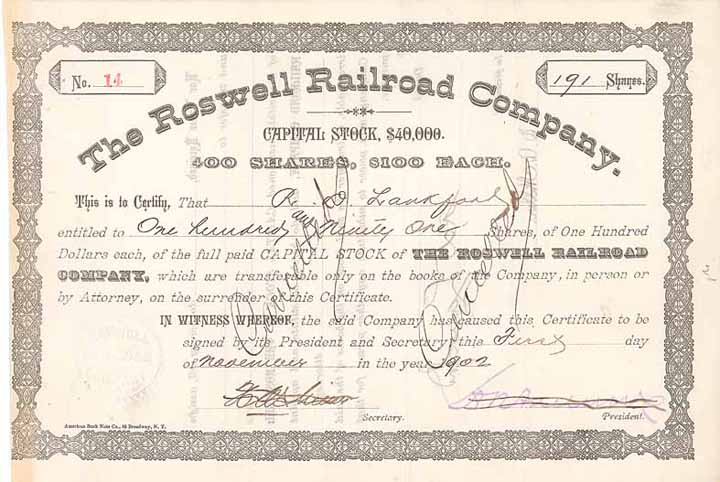 No. 14
191 Shares.
The Roswell Railroad Company.
CAPITAL STOCK, $40,000.
400 SHARES, $100 EACH.
This is to Certify, That R. D. Lankford
entitled to One hundred and Ninety One Shares, of One Hundred
Dollars each, of the full paid CAPITAL STOCK of THE ROSWELL RAILROAD
COMPANY, which are transferable only on the books of the Company, in person or
by Attorney, on the surrender of this Certificate.
IN WITNESS WHEREOF, the said Company has caused this Certificate to be
signed by its President and Secretary this First day
of November in the year 1902
Secretary.
President.
American Bank Note Co., 86 Broadway, N. Y.
Cancelled
Cancelled